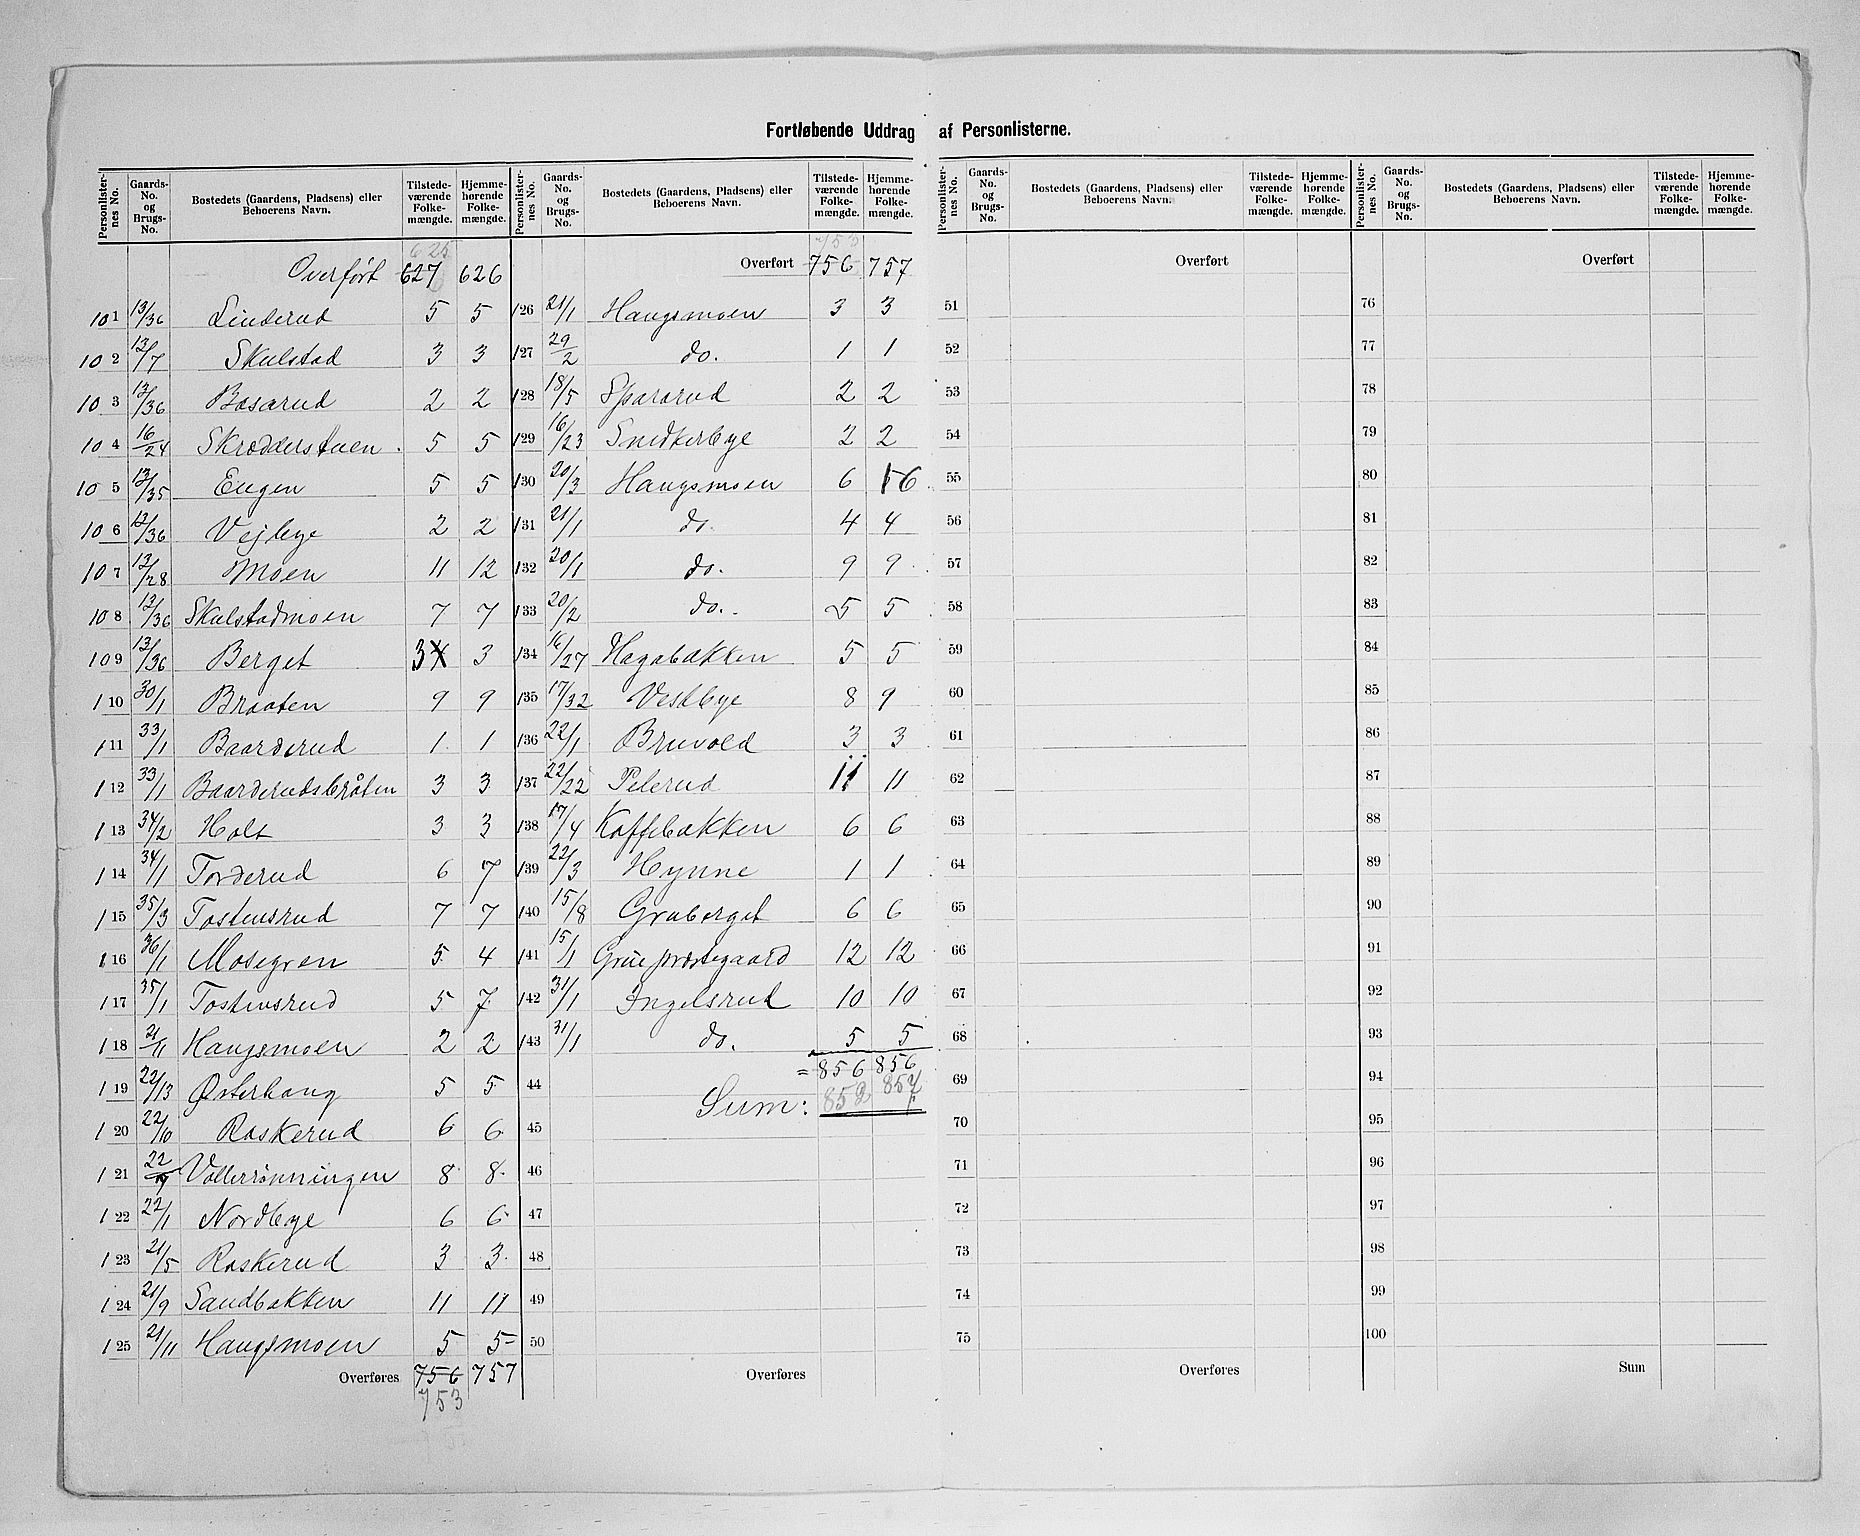 Fortløbende Uddrag af Personlisterne.
Personlister-nes No. | Gaards-No. og Brugs-No. | Bostedets (Gaardens, Pladsens) eller Beboerens Navn. | Tilstede-værende Folke-mængde. | Hjemme-hørende Folke-mængde.
Overført 625 627 626
101 13/36 Linderud 5 5
102 13/7 Skulstad 3 3
103 13/36 Basarud 2 2
104 16/24 Skrædderstuen 5 5
105 13/35 Engen 5 5
106 13/36 Vejbye 2 2
107 13/28 Moen 11 12
108 13/36 Skulstadmoen 7 7
109 13/36 Berget 3 3
110 30/1 Braaten 9 9
111 33/1 Baarderud 1 1
112 33/1 Baarderudsbråten 3 3
113 34/2 Holt 3 3
114 34/1 Torderud 6 7
115 35/3 Tostensrud 7 7
116 36/1 Mosegren 5 4
117 35/1 Tostensrud 5 7
118 21/11 Haugsmoen 2 2
119 22/13 Østerhaug 5 5
120 22/10 Raskerud 6 6
121 22/19 Vollerrönningen 8 8
122 22/1 Nordbye 6 6
123 21/5 Raskerud 3 3
124 21/9 Sandbakken 11 11
125 21/11 Haugsmoen 5 5
Overføres 756 757
753
Personlister-nes No. | Gaards-No. og Brugs-No. | Bostedets (Gaardens, Pladsens) eller Beboerens Navn. | Tilstede-værende Folke-mængde. | Hjemme-hørende Folke-mængde.
Overført 753 756 757
126 21/1 Haugsmoen 3 3
127 29/2 do. 1 1
128 18/5 Spararud 2 2
129 16/23 Snedkerbye 2 2
130 20/3 Haugsmoen 6 6
131 21/1 do. 4 4
132 20/1 do. 9 9
133 20/2 do. 5 5
134 16/27 Hagabakken 5 5
135 17/32 Vestbye 8 9
136 22/1 Bruvold 3 3
137 22/22 Pelerud 11 11
138 17/4 Kaffebakken 6 6
139 22/3 Hynne 1 1
140 15/8 Graberget 6 6
141 15/1 Grue præstegaard 12 12
142 31/1 Ingelsrud 10 10
143 31/1 do. 5 5
44 = 856 856
Sum: 852 857
45
46
47
48
49
50
Overføres
Personlister-nes No. | Gaards-No. og Brugs-No. | Bostedets (Gaardens, Pladsens) eller Beboerens Navn. | Tilstede-værende Folke-mængde. | Hjemme-hørende Folke-mængde.
Overført
51
52
53
54
55
56
57
58
59
60
61
62
63
64
65
66
67
68
69
70
71
72
73
74
75
Overføres
Personlister-nes No. | Gaards-No. og Brugs-No. | Bostedets (Gaardens, Pladsens) eller Beboerens Navn. | Tilstede-værende Folke-mængde. | Hjemme-hørende Folke-mængde.
Overført
76
77
78
79
80
81
82
83
84
85
86
87
88
89
90
91
92
93
94
95
96
97
98
99
100
Sum